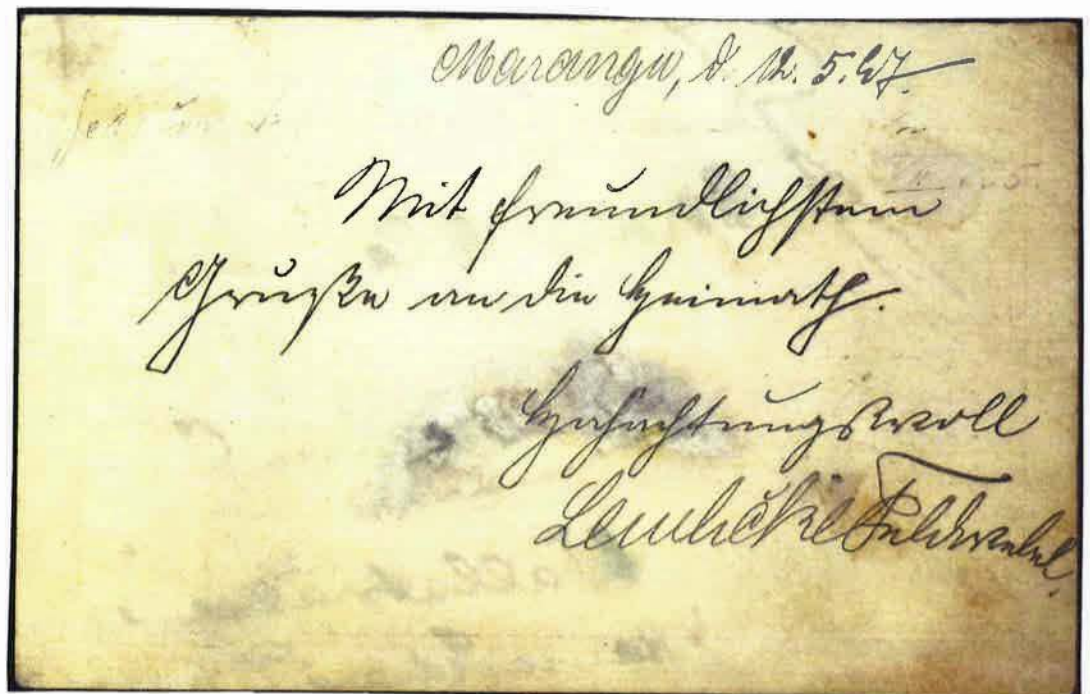 Marangu, d. 12. 5. 97.
Mit freundlichstem
Grusse an die Heimath.
Hochachtungsvoll
Feldwebel.